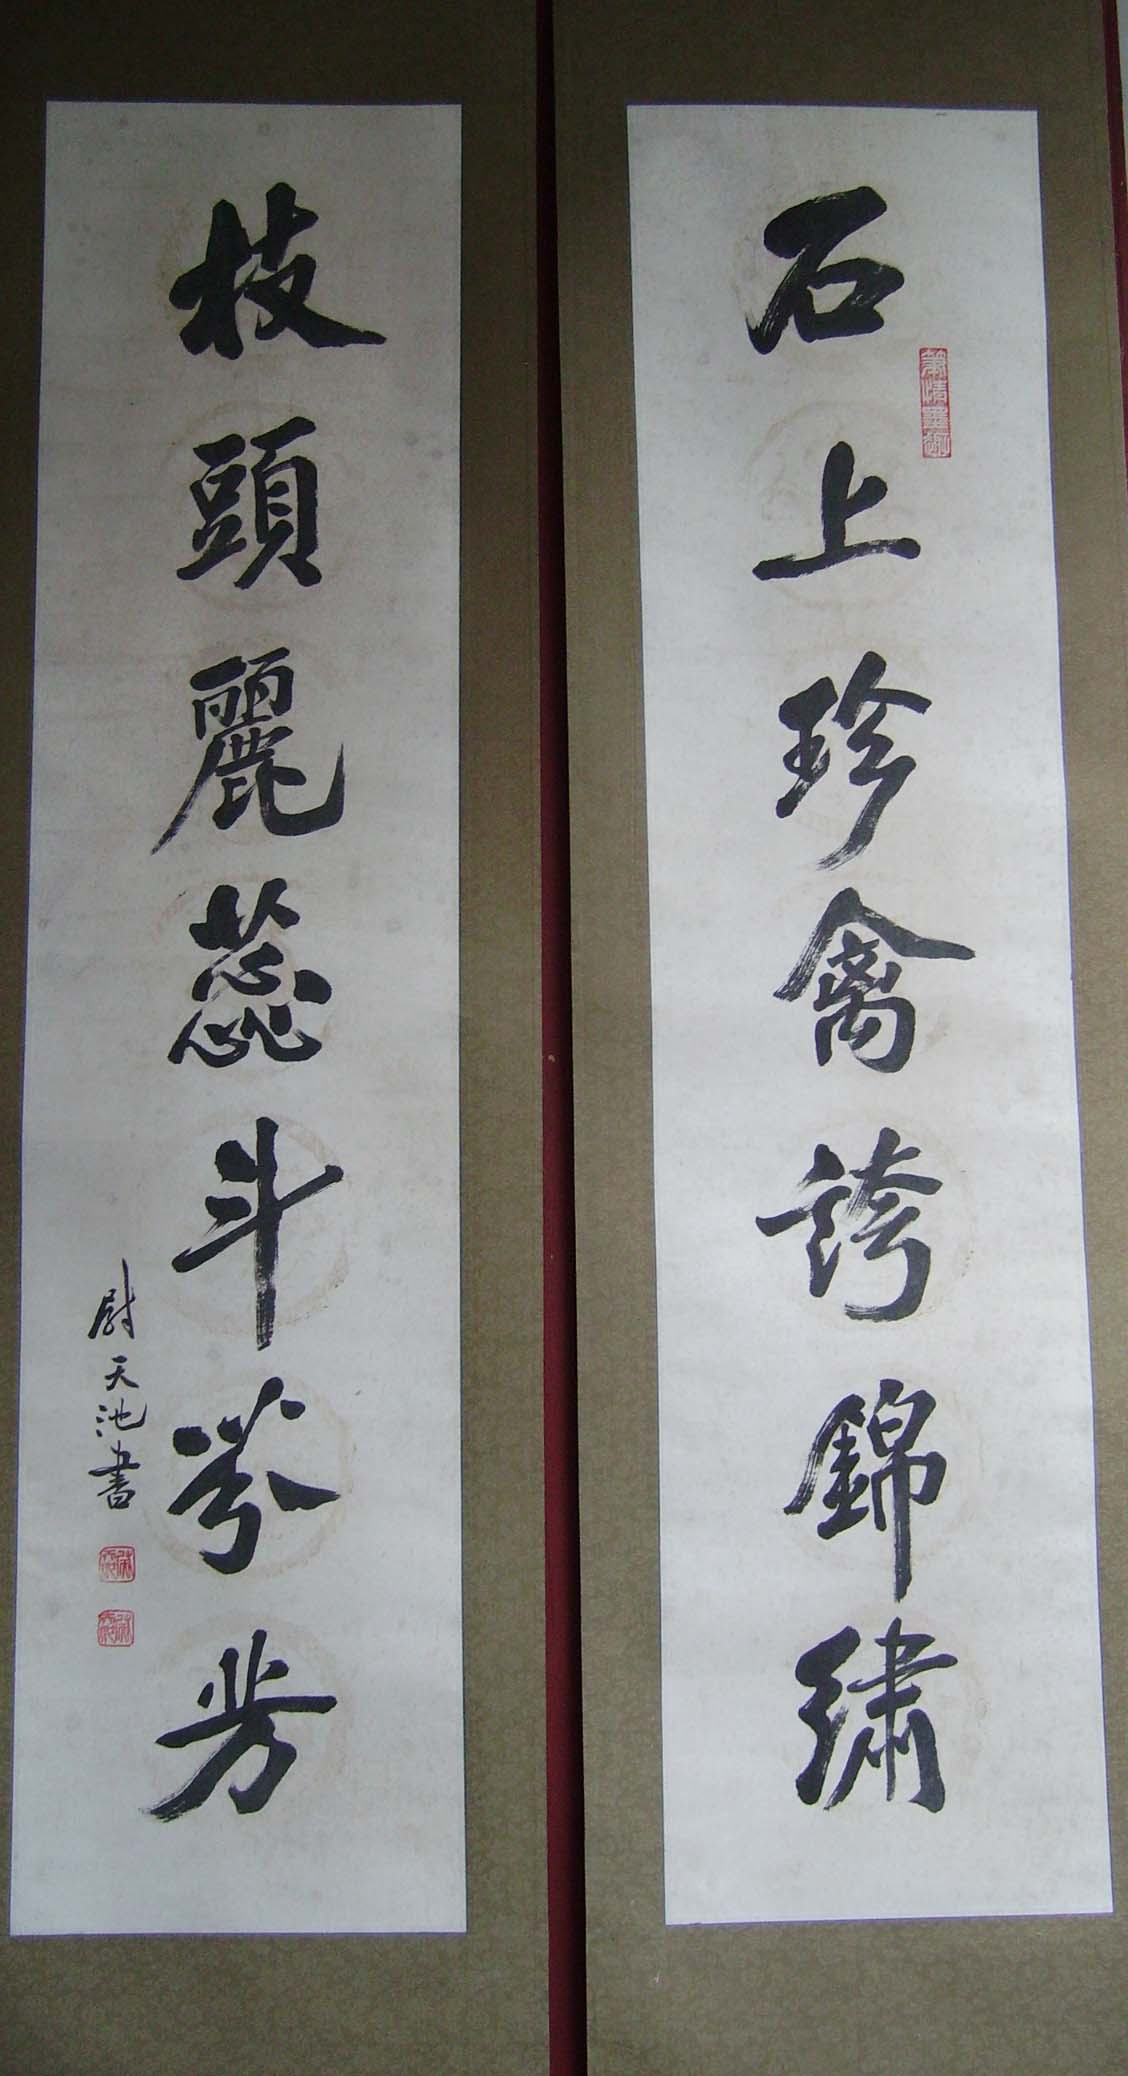 石上珍禽誇錦繡
枝頭麗蕊斗芬芳
尉天池書